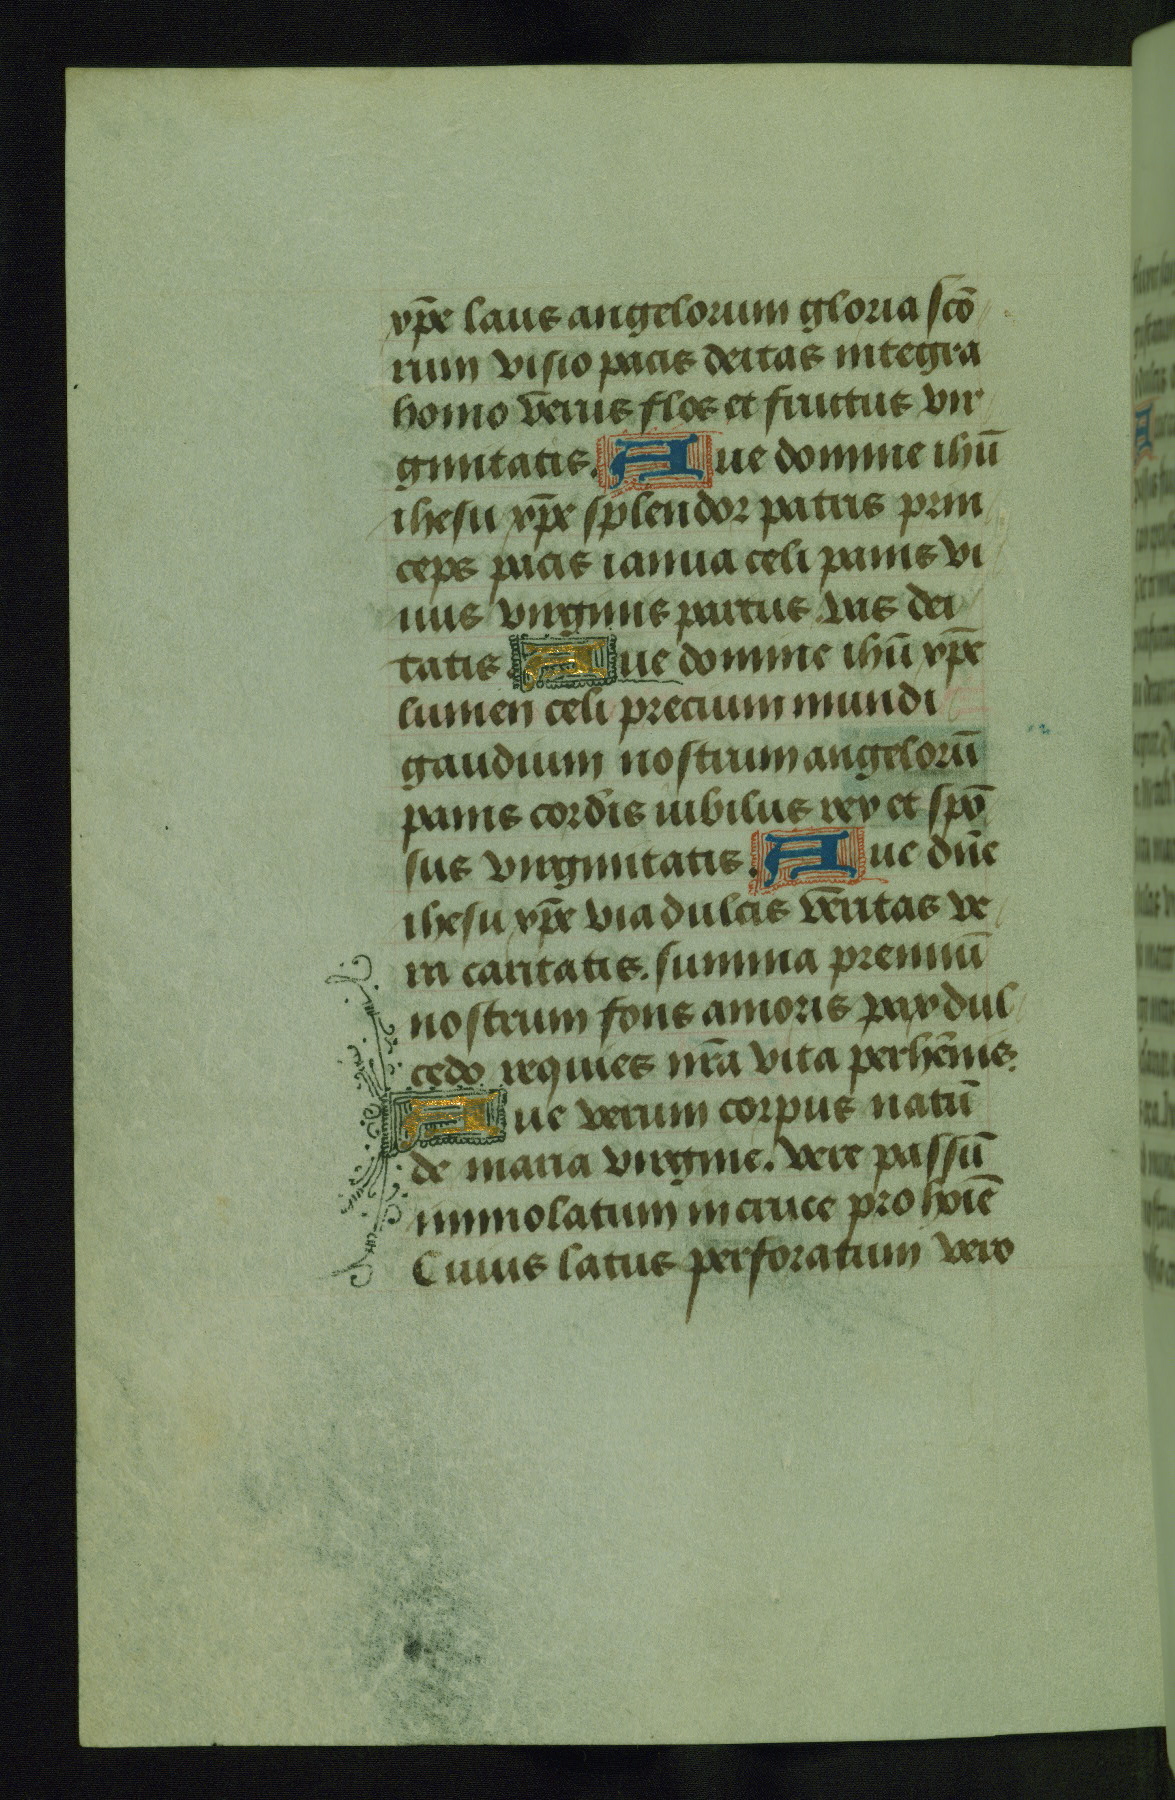 xp̄e laus angelorum gloria sc̄o
rum visio pacis deitas integra
homo v̄erus flos et fructus vir
ginitatis. Aue domine ihū
ihesu xp̄e splendor patris prin
ceps pacis ianua celi panis vi
uus virginis partus vas dei
tatis. Aue domine ihū xp̄e
lumen celi precium mundi
gaudium nostrum angelorū
panis cordis iubilus rex et spō
sus virginitatis. Aue dn̄e
ihesu xp̄e via dulcis v̄eritas ve
ra caritatis. summa premiū
nostrum fons amoris pax dul
cedo requies nr̄a vita perhēnis.
Aue verum corpus natū
de maria virgine. vere passū
immolatum in cruce pro hoīe
Cuius latus perforatum vero